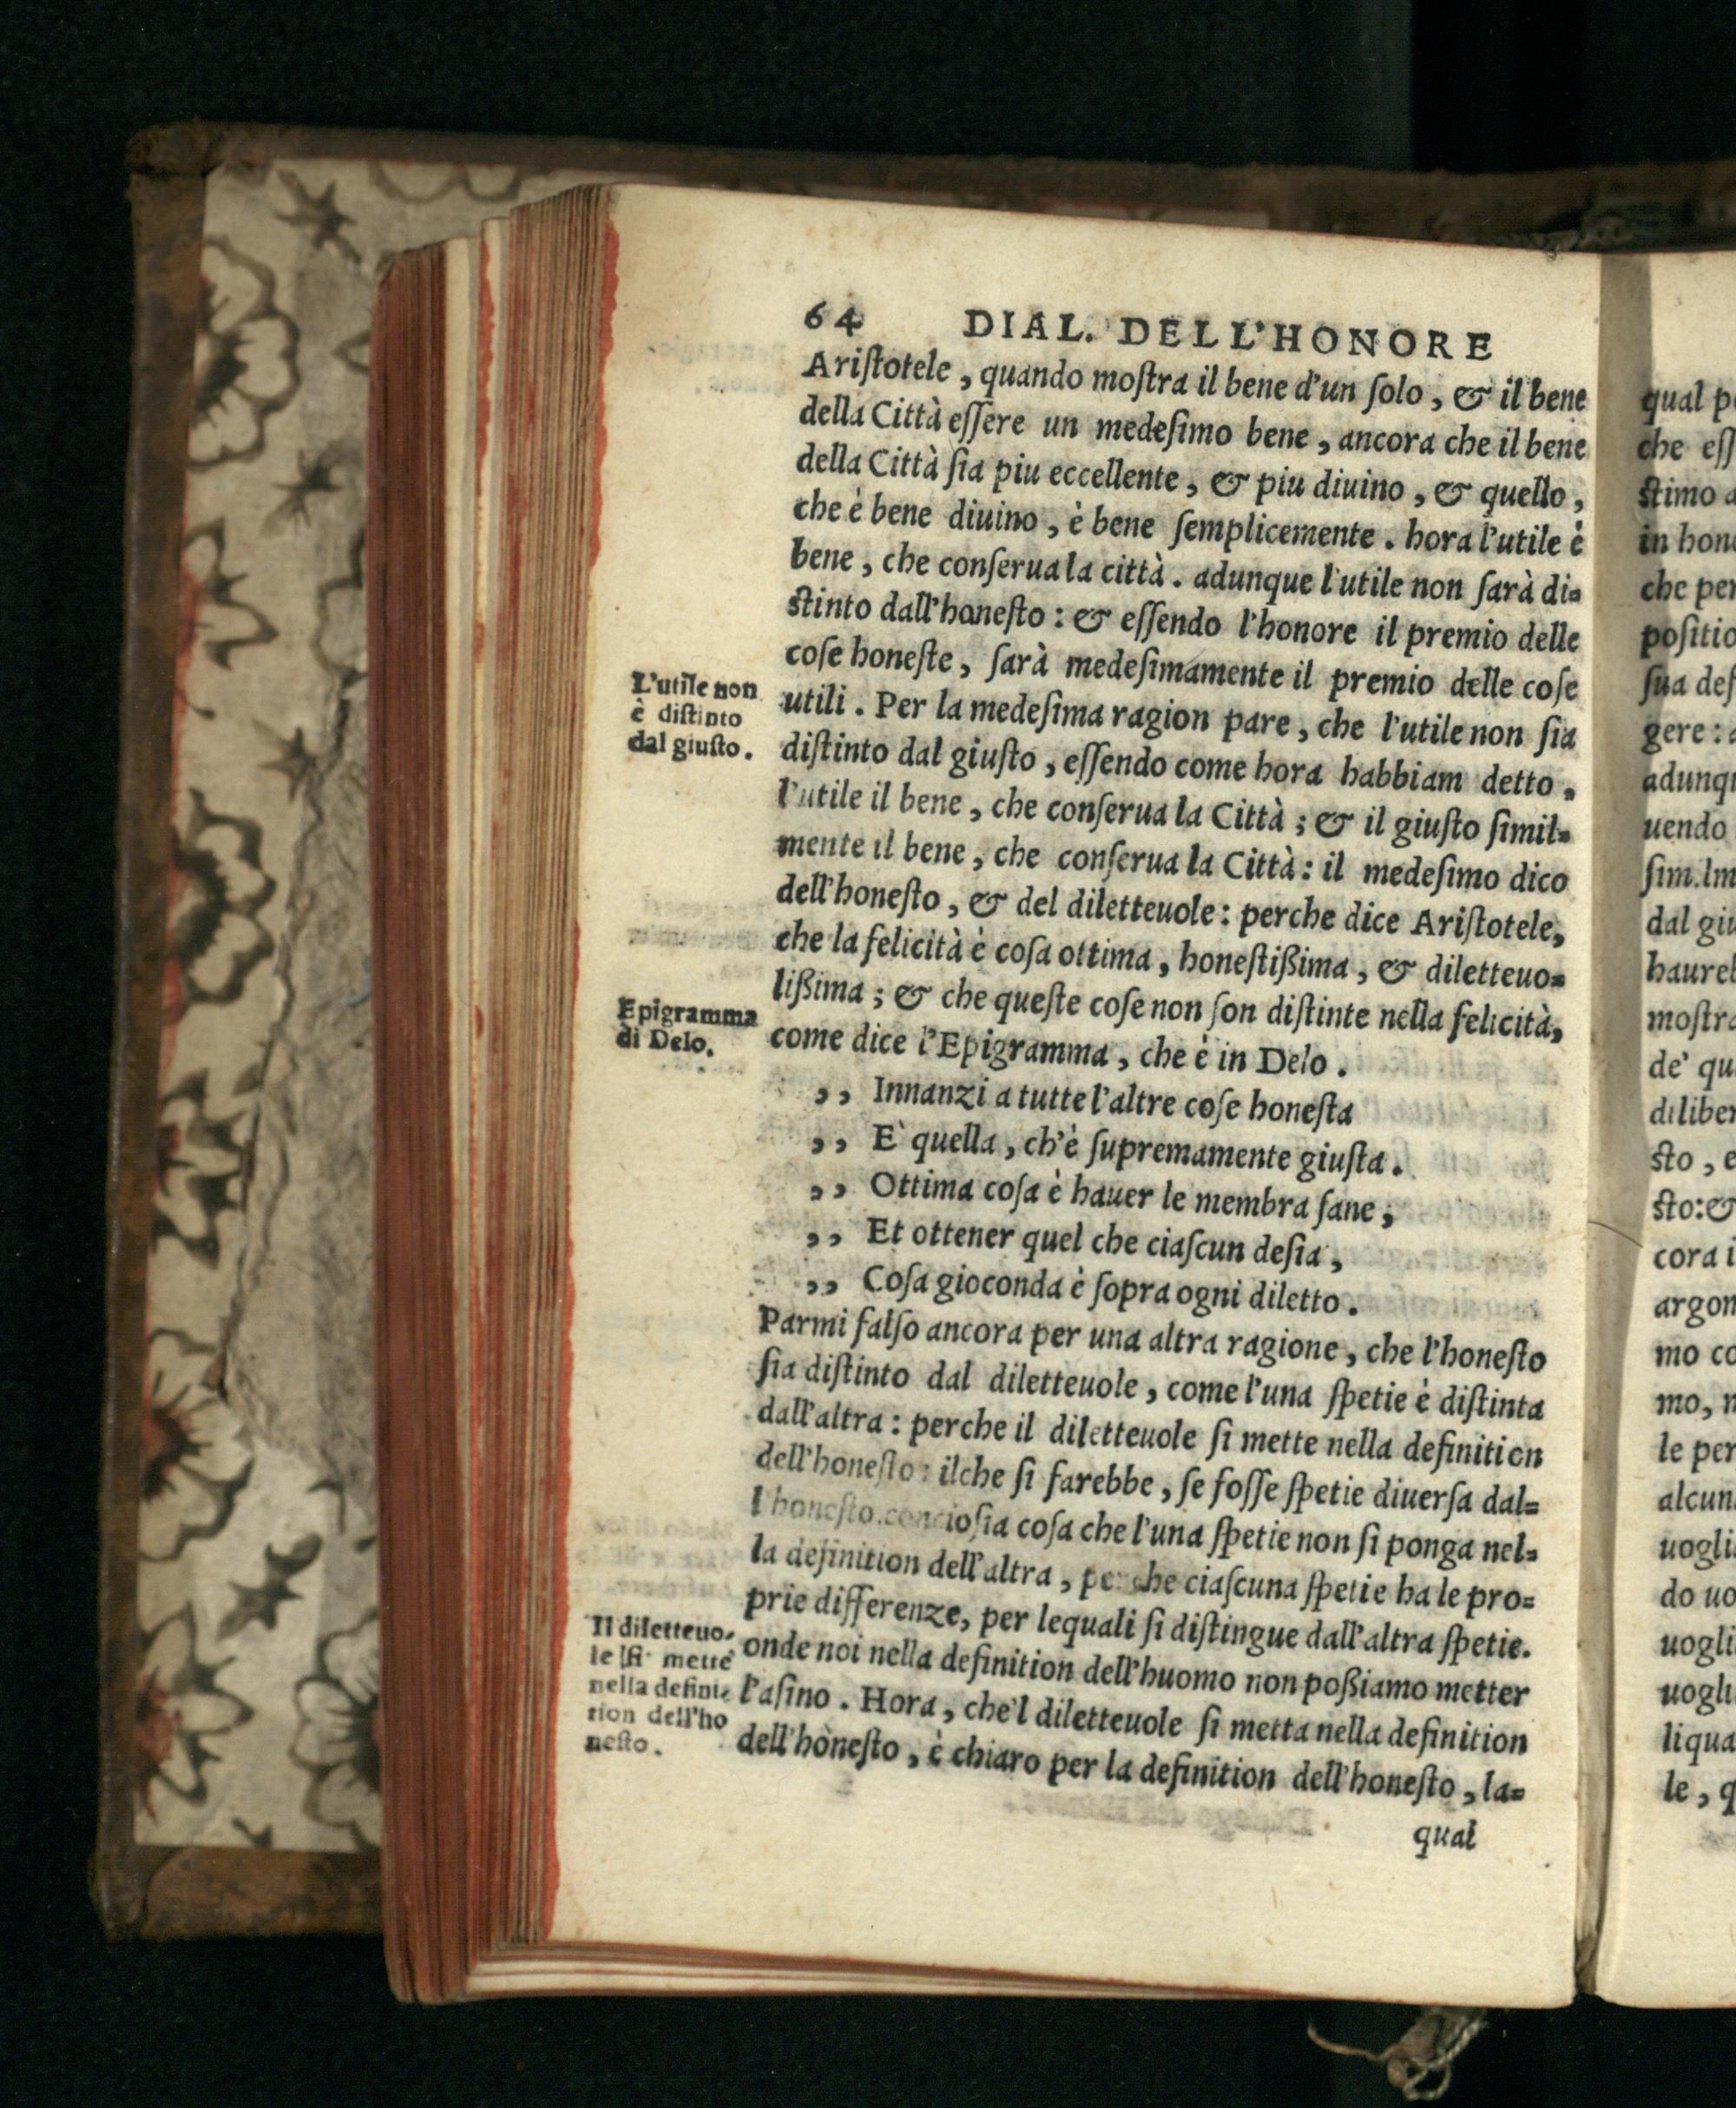 64 DIAL. DELL'HONORE
Ariſtotele, quando moſtra il bene d'un ſolo, & il bene
della Città eſſere un medeſimo bene, ancora che il bene
della Città ſia piu eccellente, & piu diuino, & quello,
che è bene diuino, è bene ſemplicemente. hora l'utile è
bene, che conſerua la città. adunque l'utile non ſarà di=
ſtinto dall'honeſto: & eſſendo l'honore il premio delle
coſe honeſte, ſarà medeſimamente il premio delle coſe
utili. Per la medeſima ragion pare, che l'utile non ſia
diſtinto dal giuſto, eſſendo come hora habbiam detto,
l'utile il bene, che conſerua la Città; & il giuſto ſimil=
mente il bene, che conſerua la Città: il medeſimo dico
dell'honeſto, & del diletteuole: perche dice Ariſtotele,
che la felicità è coſa ottima, honeſtißima, & diletteuo=
lißima; & che queſte coſe non ſon diſtinte nella felicità,
come dice l'Epigramma, che è in Delo.
,, Innanzi a tutte l'altre coſe honeſta
,, E` quella, ch'è ſupremamente giuſta.
,, Ottima coſa è hauer le membra ſane,
,, Et ottener quel che ciaſcun deſia,
,, Coſa gioconda è ſopra ogni diletto.
Parmi falſo ancora per una altra ragione, che l'honeſto
ſia diſtinto dal diletteuole, come l'una ſpetie è diſtinta
dall'altra: perche il diletteuole ſi mette nella definition
dell'honeſto: ilche ſi farebbe, ſe foſſe ſpetie diuerſa dal=
l honeſto. concioſia coſa che l'una ſpetie non ſi ponga nel=
la definition dell'altra, perche ciaſcuna ſpetie ha le pro=
prie differenze, per lequali ſi diſtingue dall'altra ſpetie.
onde noi nella definition dell'huomo non poßiamo metter
l'aſino. Hora, che'l diletteuole ſi metta nella definition
dell'honeſto, è chiaro per la definition dell'honeſto, la=
qual
L'utile non
è diſtinto
dal giuſto.
Epigramma
di Delo.
Il diletteuo-
le ſi mette
nella defini-
tion dell'ho
neſto.
qual
che
ſtimo
in
che per
poſitio
ſua
gere:
uendo
dal
moſtra
de'
ſto,
ſto:&
cora
mo
mo,
le per
do
le,